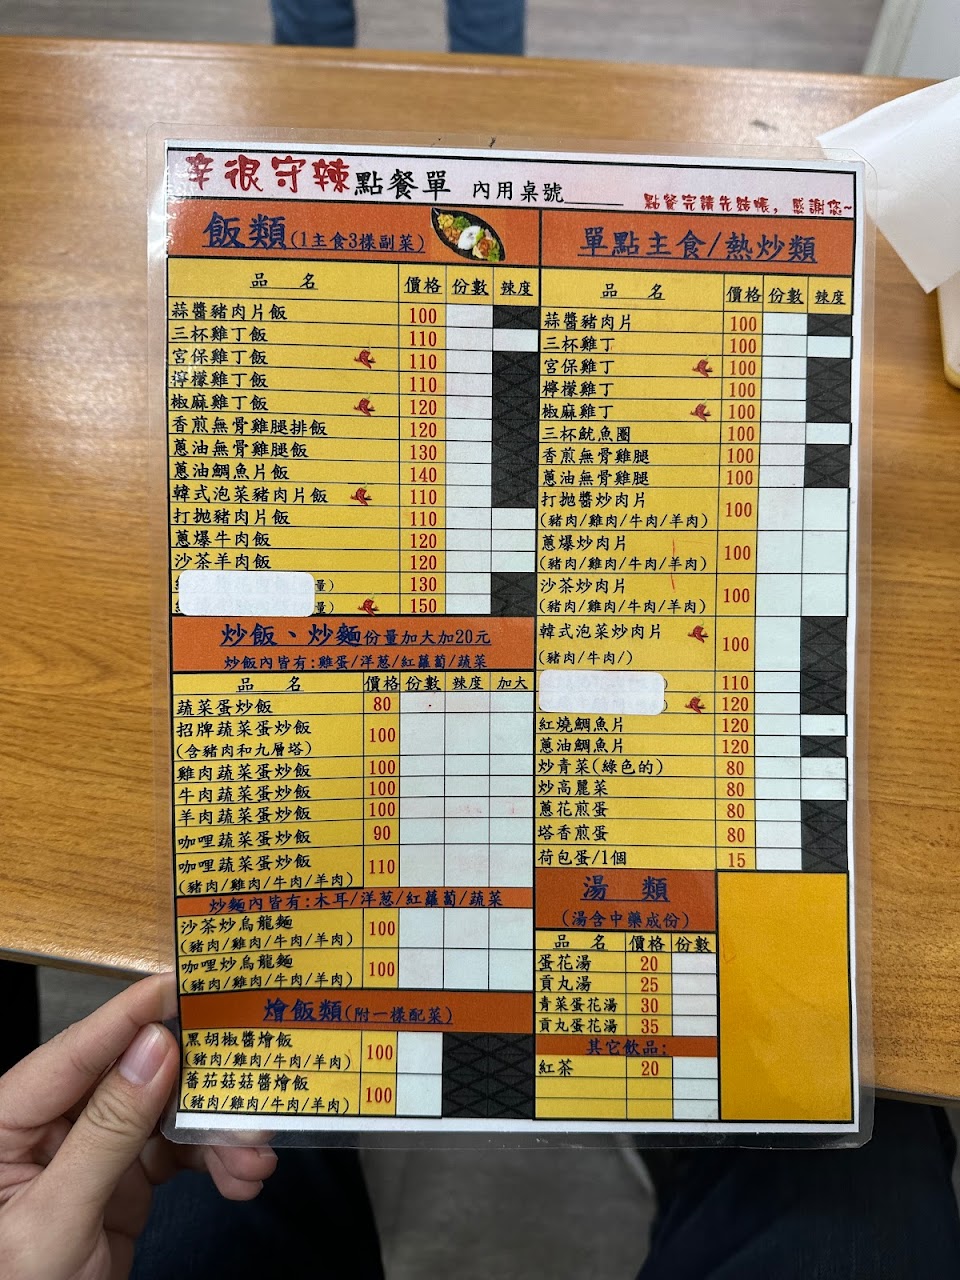 辛很守辣點餐單 內用桌號
點餐完請先結帳，感謝您~
飯類(1主食3樣副菜)
品 名 價格 份數 辣度
蒜醬豬肉片飯 100
三杯雞丁飯 110
宮保雞丁飯 110
檸檬雞丁飯 110
椒麻雞丁飯 120
香煎無骨雞腿排飯 120
蔥油無骨雞腿飯 130
蔥油鯛魚片飯 140
韓式泡菜豬肉片飯 110
打拋豬肉片飯 110
蔥爆牛肉飯 120
沙茶羊肉飯 120
量) 130
量) 150
炒飯、炒麵份量加大加20元
炒飯內皆有:雞蛋/洋蔥/紅蘿蔔/蔬菜
品 名 價格 份數 辣度 加大
蔬菜蛋炒飯 80
招牌蔬菜蛋炒飯 100
(含豬肉和九層塔)
雞肉蔬菜蛋炒飯 100
牛肉蔬菜蛋炒飯 100
羊肉蔬菜蛋炒飯 100
咖哩蔬菜蛋炒飯 90
咖哩蔬菜蛋炒飯 110
(豬肉/雞肉/牛肉/羊肉)
炒麵內皆有:木耳/洋蔥/紅蘿蔔/蔬菜
沙茶炒烏龍麵 100
(豬肉/雞肉/牛肉/羊肉)
咖哩炒烏龍麵 100
(豬肉/雞肉/牛肉/羊肉)
燴飯類(附一樣配菜)
黑胡椒醬燴飯 100
(豬肉/雞肉/牛肉/羊肉)
蕃茄菇菇醬燴飯 100
(豬肉/雞肉/牛肉/羊肉)
單點主食/熱炒類
品 名 價格 份數 辣度
蒜醬豬肉片 100
三杯雞丁 100
宮保雞丁 100
檸檬雞丁 100
椒麻雞丁 100
三杯魷魚圈 100
香煎無骨雞腿 100
蔥油無骨雞腿 100
打拋醬炒肉片 100
(豬肉/雞肉/牛肉/羊肉)
蔥爆炒肉片 100
(豬肉/雞肉/牛肉/羊肉)
沙茶炒肉片 100
(豬肉/雞肉/牛肉/羊肉)
韓式泡菜炒肉片 100
(豬肉/牛肉/)
110
120
紅燒鯛魚片 120
蔥油鯛魚片 120
炒青菜(綠色的) 80
炒高麗菜 80
蔥花煎蛋 80
塔香煎蛋 80
荷包蛋/1個 15
湯 類
(湯含中藥成份)
品 名 價格 份數
蛋花湯 20
貢丸湯 25
青菜蛋花湯 30
貢丸蛋花湯 35
其它飲品:
紅茶 20